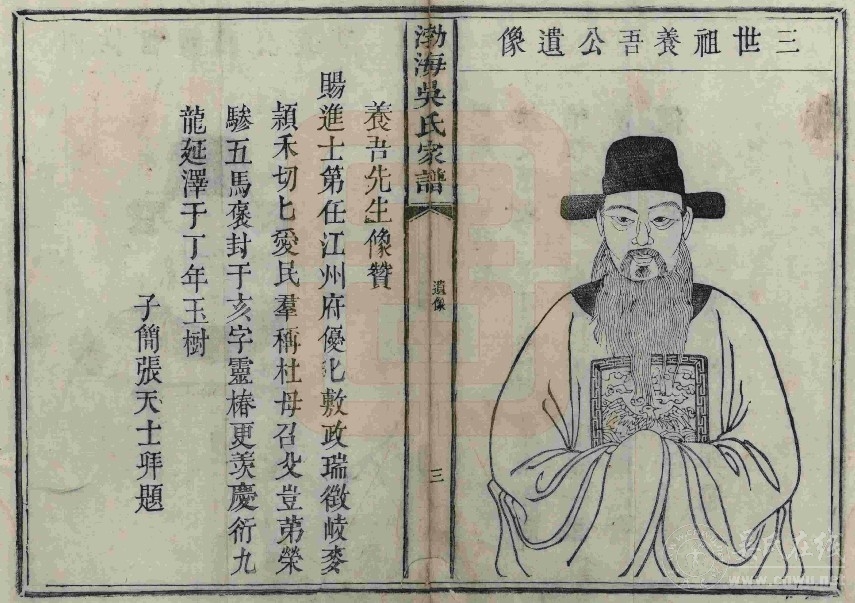 三世祖養吾公遺像
渤海吳氏家譜
遺像
三
養吾先生像贊
賜進士第任江州府優化敷政瑞徵岐麥
穎禾切匕愛民羣稱杜母召父豈第榮
驂五馬褒封于亥字靈椿更羡慶衍九
龍延澤于丁年玉樹
子簡張天士拜題
www.cnwu.net